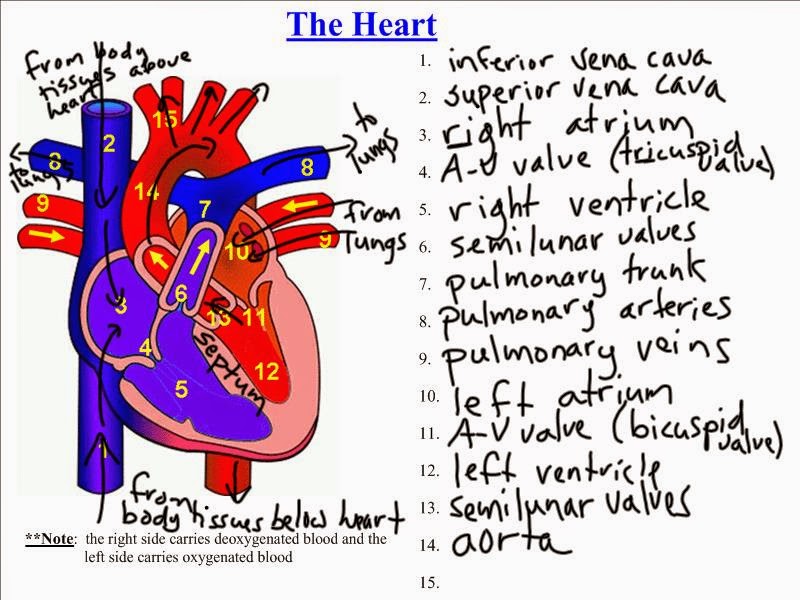 The Heart
from body
tissues above
heart
to
lungs
to
lungs
from
lungs
15
2
8
8
14
9
7
10
9
3
6
13
11
4
septum
12
5
1
from
body tissues below heart
**Note: the right side carries deoxygenated blood and the
left side carries oxygenated blood
1. inferior vena cava
2. superior vena cava
3. right atrium
4. A-V valve (tricuspid
valve)
5. right ventricle
6. semilunar valves
7. pulmonary trunk
8. pulmonary arteries
9. pulmonary veins
10. left atrium
11. A-V valve (bicuspid
valve)
12. left ventricle
13. semilunar valves
14. aorta
15.